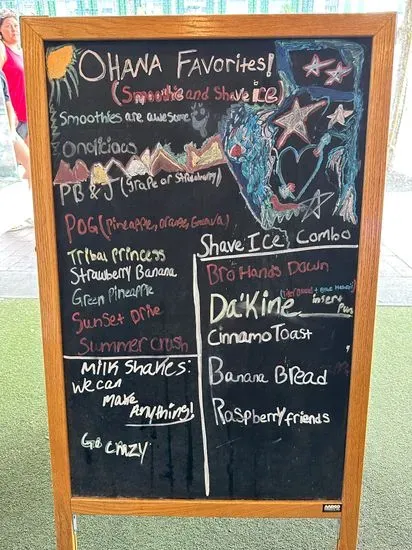 OHANA Favorites!
(Smoothie and Shave ice)
Smoothies are awesome
Onolicious
PB & J (Grape or Strawberry)
POG (Pineapple, orange, Guava)
Tribal Princess
Strawberry Banana
Green Pineapple
Sunset Drive
Summer Crush
Milk Shakes:
We can
make
Anything!
Go crazy
Shave Ice Combo
Bro Hands Down
Da'Kine
insert
Pun
Cinnamo Toast
Banana Bread
Raspberry friends